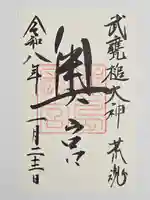 武甕槌大神 荒魂
奥宮
令和八年一月二十三日